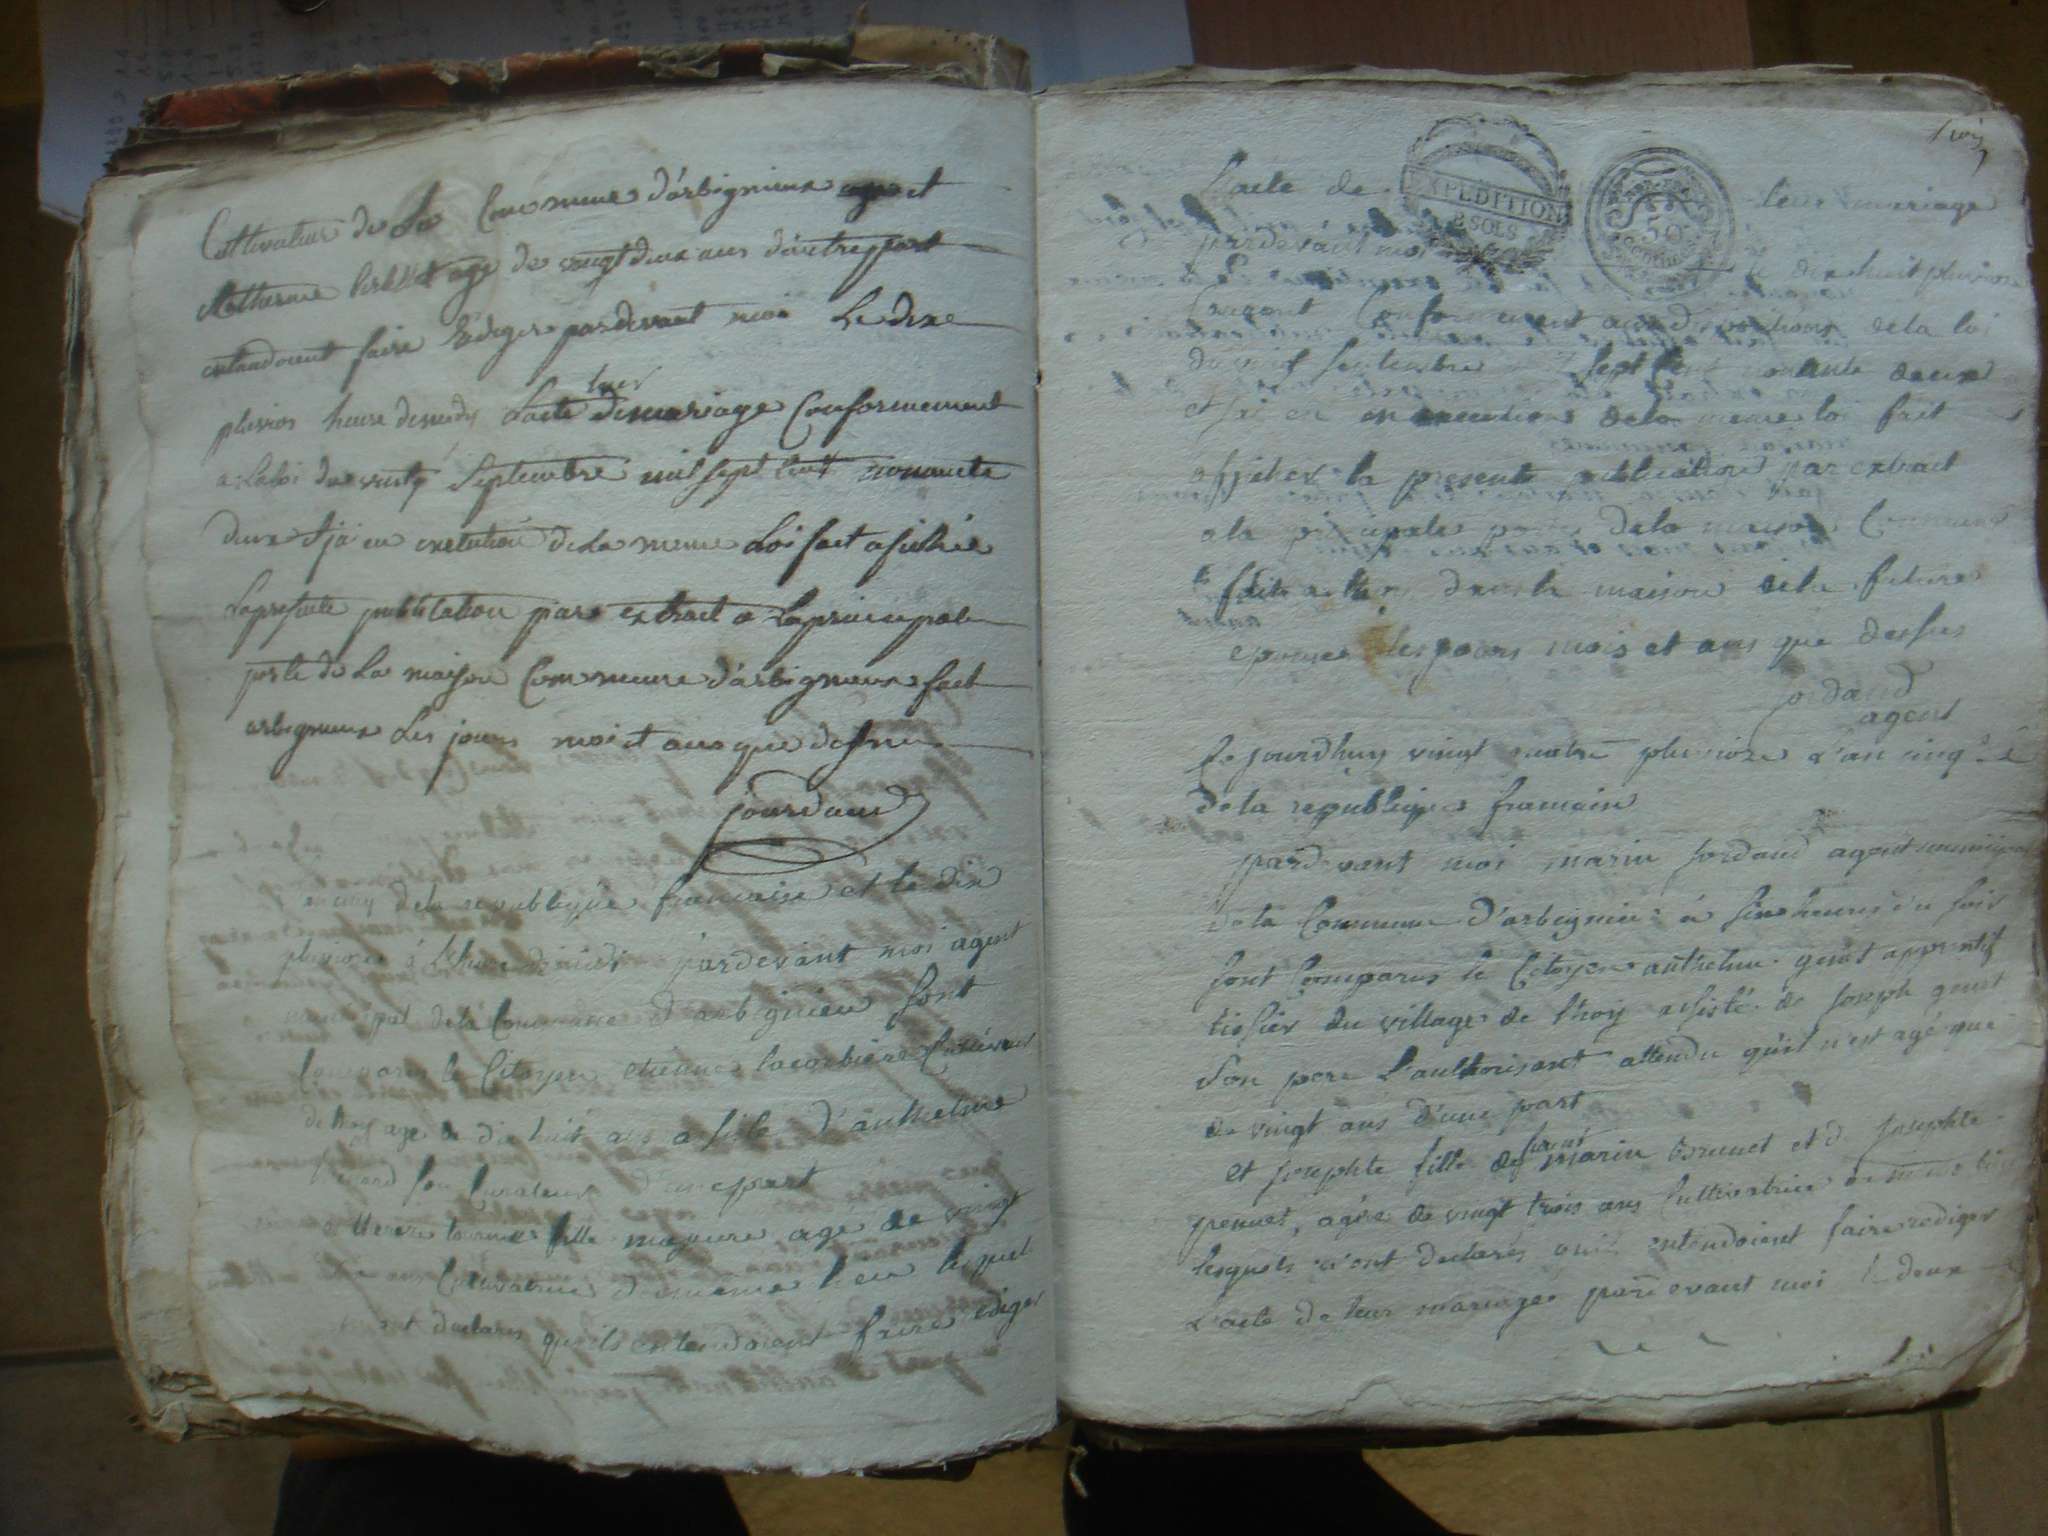 Cultivateur de La Commune d'arbignieux
agé de vingt deux ans d'autre part
entendoient faire Rediger pardevant moi Le dixe
pluvios heure de midy L'acte de leur mariage Conformement
a La loi du vingt Septembre mil sept cent nonante
deux & jai en exetution de La meme Loi fait afichée
La presente publication par extrait a La principale
porte de La maison Commune d'arbignieux fait
arbignieux Les jours moi et ans que dessus
jourdand
l'an cinq de la republique francaise et le dix
pluviose á l'heure de midi pardevant moi agent
municipal de la Commune d'arbignieu sont
Comparus le Citoyen etienne lacorbiere Cultivateur
de thoy agé de dix huit ans assisté d'anthelme
son Curateur d'une part
fille majeure agé de vingt
Cultivatrice du même lieu lesquels
m'ont declarés qu'ils entendoient faire rediger
trois
L'acte de leur mariage
pardevant moi le dix huit pluviose
Courant Conformement aux dispositions de la loi
du vingt septembre 7 sept cent nonante deux
et j'ai en execution de la meme loi fait
afficher la presente publication par extrait
a la principale porte de la maison Commune
fait a thoy dans la maison de la future
epouse les jours mois et ans que dessus
jordand
agent
Ce jourdhuy vingt quatre pluviose L'an cinq
de la republique francaise
pardevant moi marin jordand agent municipal
de la Commune d'arbignieu á six heures du soir
sont Comparus le Citoyen anthelme genet apprentif
tissier du village de thoy assisté de joseph genet
son pere L'authorisant attendu qu'il n'est agé que
de vingt ans d'une part
et josephte fille de funt marin brunet et de josephte
penuet, agée de vingt trois ans Cultivatrice du même lieu
lesquels m'ont declarés qu'ils entendoient faire rediger
L'acte de leur mariage pardevant moi le deux
EXPEDITION
2 SOLS
50
Centimes